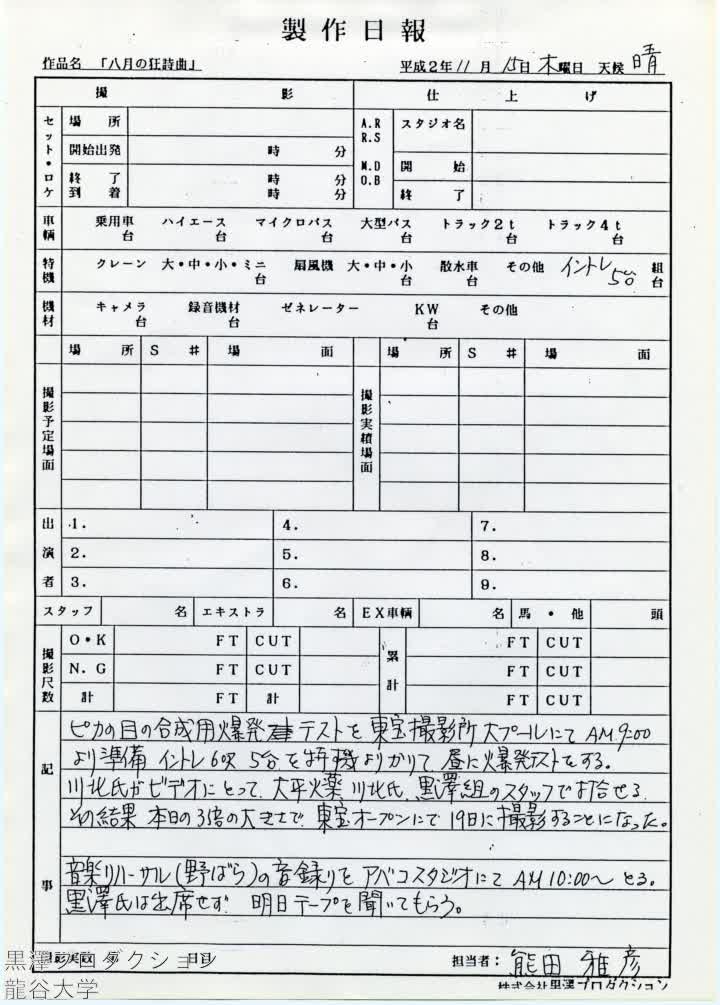 製作日報
作品名 「八月の狂詩曲」 平成2年11月15日 木曜日 天候 晴
撮影 仕上げ
セット・ロケ 場所 A.R R.S スタジオ名
開始出発 時 分 M.D O.B 開始
終了 時 分 終了
到着 時 分
車輌 乗用車 台 ハイエース 台 マイクロバス 台 大型バス 台 トラック2t 台 トラック4t 台
特機 クレーン 大・中・小・ミニ 台 扇風機 大・中・小 台 散水車 台 その他 イントレ 5台 組台
機材 キャメラ 台 録音機材 台 ゼネレーター KW 台 その他
場所 S# 場面 場所 S# 場面
撮影予定場面 撮影実績場面
出演者 1. 4. 7.
2. 5. 8.
3. 6. 9.
スタッフ 名 エキストラ 名 EX車輌 名 馬・他 頭
撮影尺数 O・K FT CUT 累計 FT CUT
N.G FT CUT FT CUT
計 FT 計 FT CUT
記事
ピカの目の合成用爆発テストを東宝撮影所大プールにてAM9:00
より準備 イントレ6尺 5台を特機よりかりて 昼に爆発テストをする。
川北氏がビデオにとって、大平火薬 川北氏、黒澤組のスタッフで打合せる
その結果 本日の3倍の大きさで、東宝オープンにて19日に撮影することになった。
音楽リハーサル(野ばら)の音録りを アバコスタジオにて AM10:00〜 とる。
黒澤氏は出席せず 明日テープを聞いてもらう。
撮影実数 日 担当者: 熊田雅彦
株式会社黒澤プロダクション
黒澤プロダクション
龍谷大学